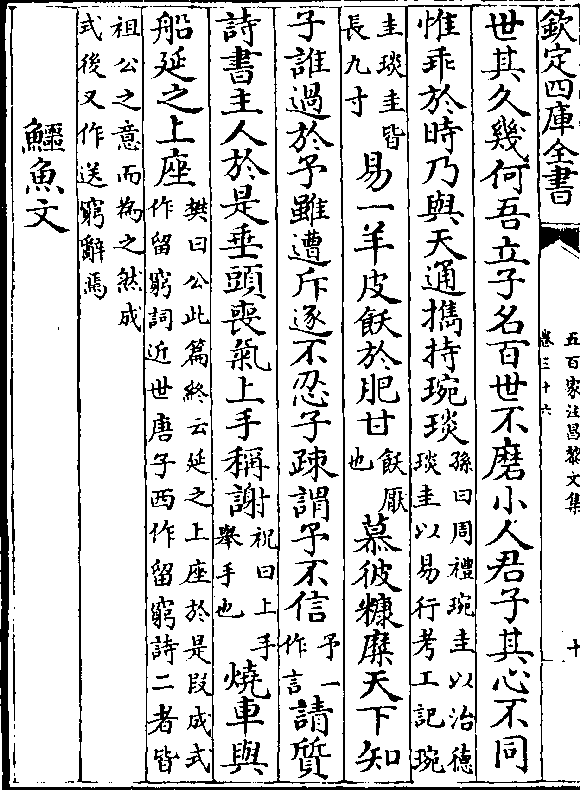 欽定四庫全書
五百家注昌黎文集
卷三十六
十
世其久幾何吾立子名百世不磨小人君子其心不同
惟乖於時乃與天通擕持琬琰孫曰周禮琬圭以治德琰圭以易行考工記琬
圭琰圭皆長九寸易一羊皮飫於肥甘飫厭也慕彼糠糜天下知
子誰過於予雖遭斥逐不忍子疎謂予不信予一作言請質
詩書主人於是垂頭喪氣上手稱謝祝曰上手舉手也燒車與
船延之上座樊曰公此篇終云延之上座於是段成式作留窮詞近世唐子西作留窮詩二者皆
祖公之意而為之然成式後又作送窮辭焉
鱷魚文